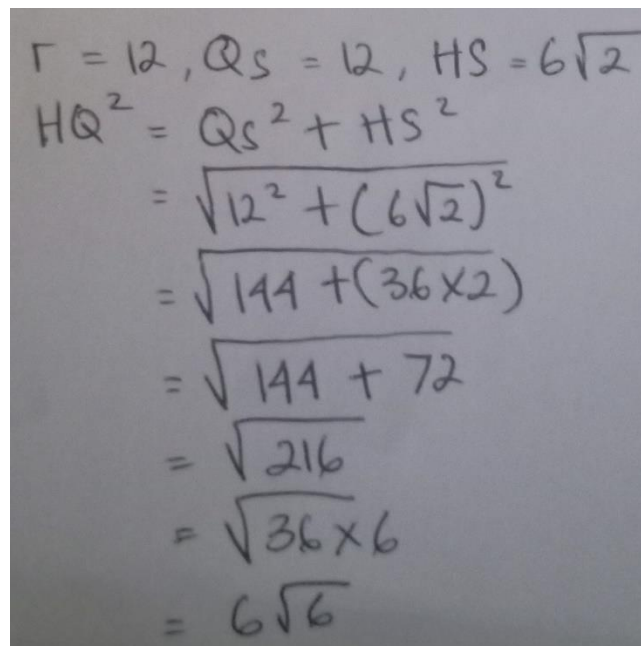 r = 12, QS = 12, HS = 6√2
HQ² = QS² + HS²
= √12² + (6√2)²
= √144 + (36×2)
= √144 + 72
= √216
= √36×6
= 6√6